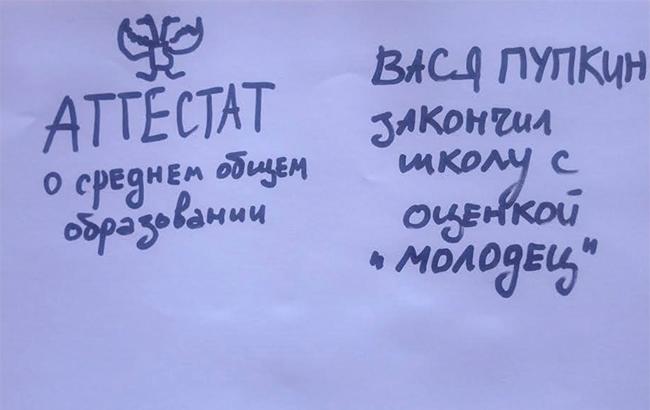 АТТЕСТАТ
о среднем общем
образовании
ВАСЯ ПУПКИН
закончил
школу с
оценкой
"молодец"